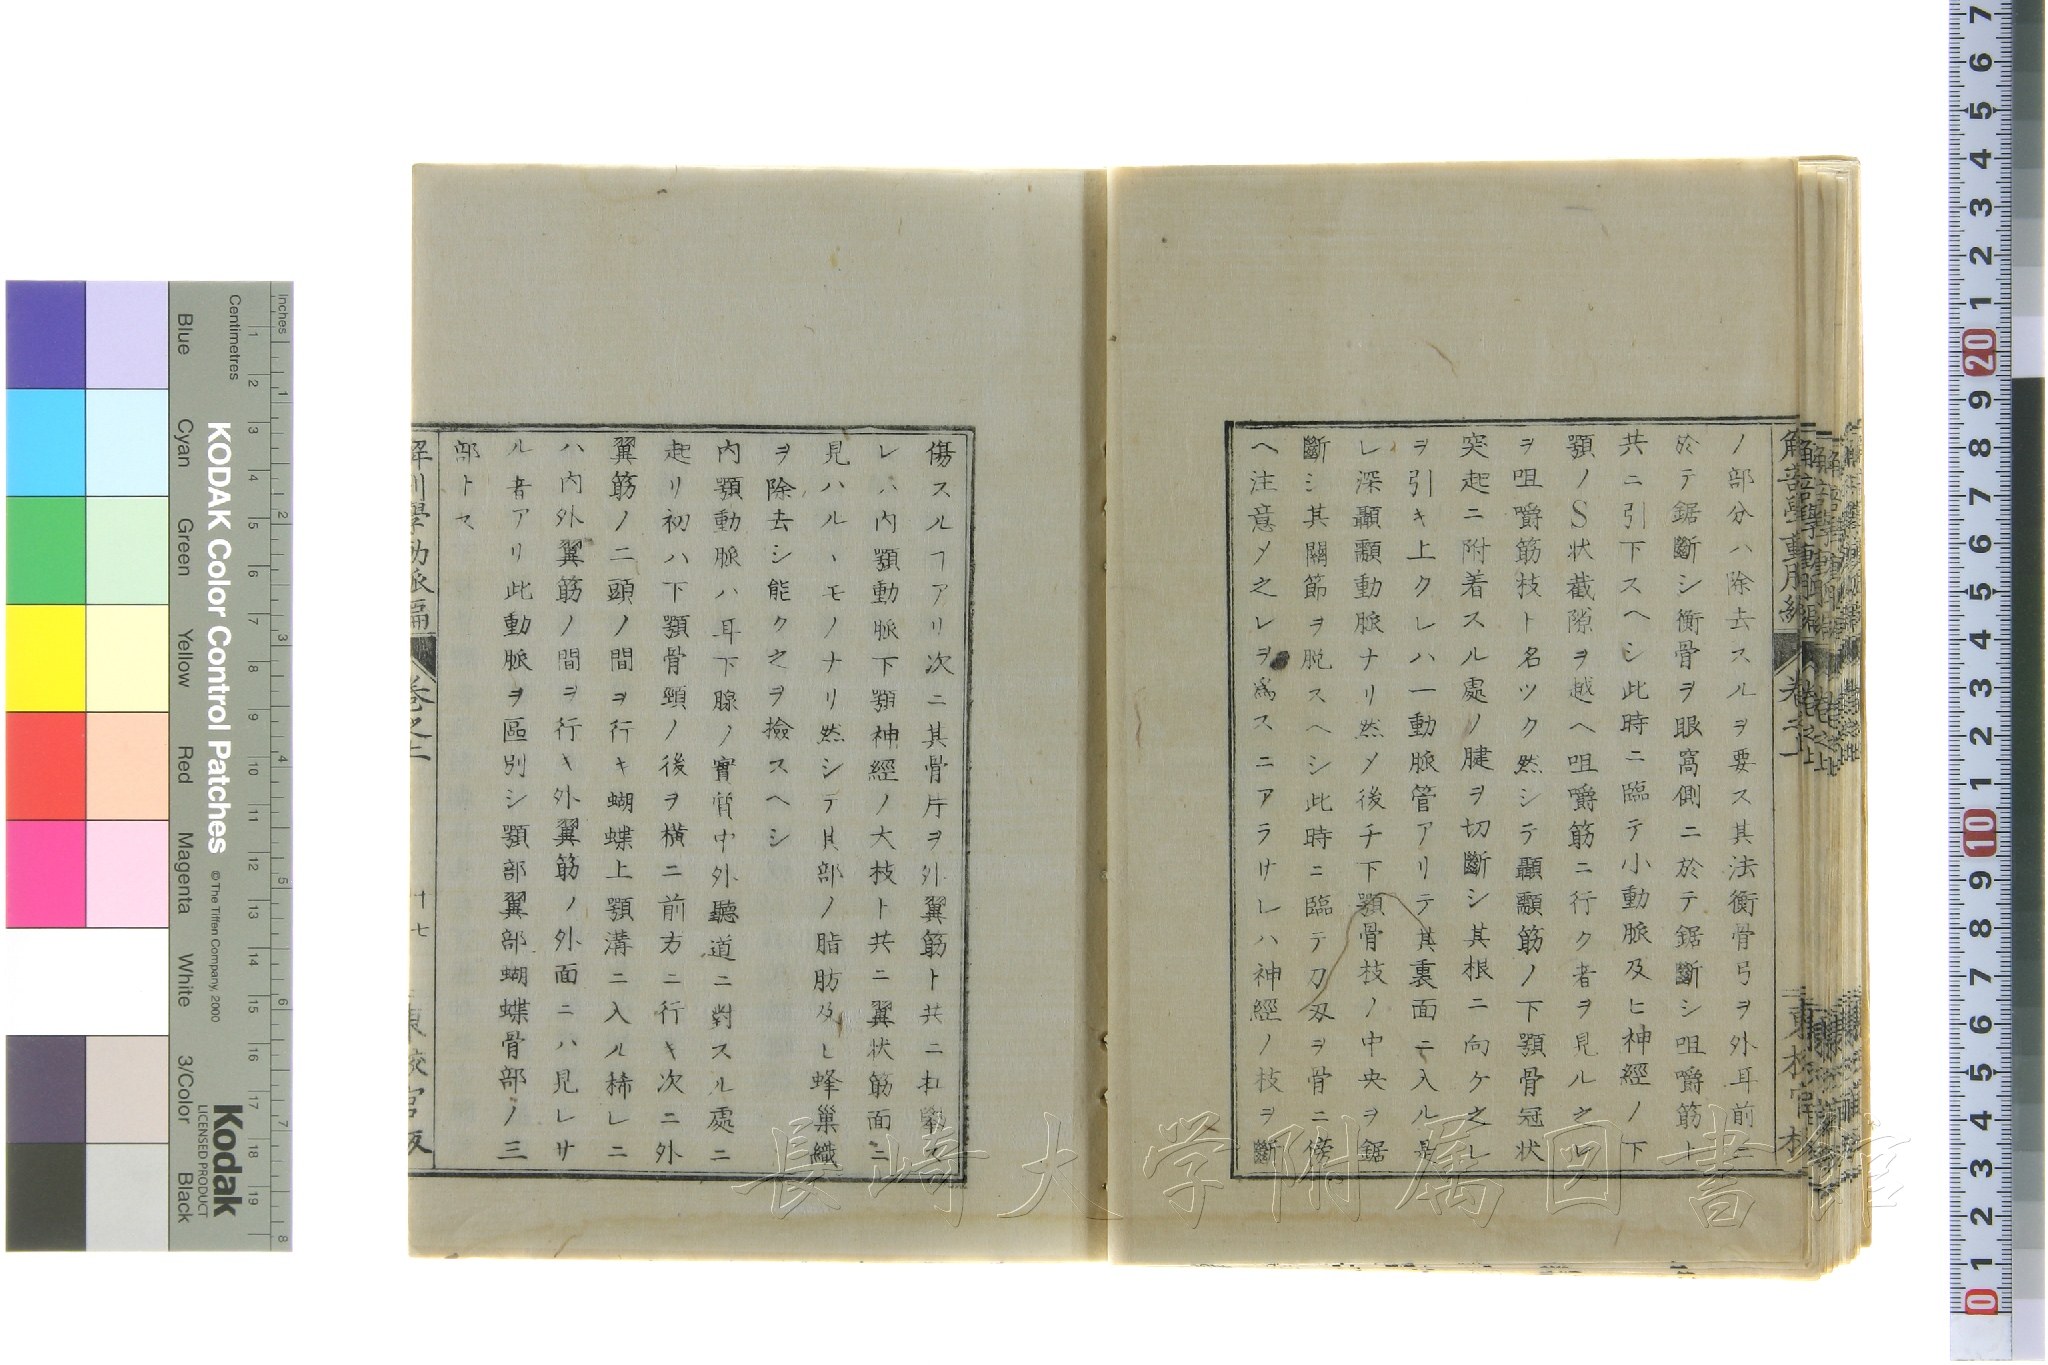 ノ部分ハ除去スルヲ要ス其法衡骨弓ヲ外耳前ニ
於テ鋸斷シ衡骨ヲ眼窩側ニ於テ鋸斷シ咀嚼筋ト
共ニ引下スヘシ此時ニ臨テ小動脈及ヒ神經ノ下
顎ノS状截隙ヲ越ヘ咀嚼筋ニ行ク者ヲ見ル之レ
ヲ咀嚼筋枝ト名ツク然シテ顳顬筋ノ下顎骨冠状
突起ニ附着スル處ノ腱ヲ切斷シ其根ニ向ケ之レ
ヲ引キ上クレハ一動脈管アリテ其裏面ニ入ル是
レ深顳顬動脈ナリ然メ後チ下顎骨枝ノ中央ヲ鋸
斷シ其關節ヲ脱スヘシ此時ニ臨テ刀刄ヲ骨ニ傍
ヘ注意メ之レヲ爲スニアラサレハ神經ノ枝ヲ斷
傷スルヿアリ次ニ其骨片ヲ外翼筋ト共ニ扛擧ス
レハ內顎動脈下顎神經ノ大枝ト共ニ翼状筋面ニ
見ハルヽモノナリ然シテ其部ノ脂肪及ヒ蜂巢織
ヲ除去シ能ク之ヲ撿スヘシ
內顎動脈ハ耳下腺ノ實質中外聽道ニ對スル處ニ
起リ初ハ下顎骨頸ノ後ヲ橫ニ前方ニ行キ次ニ外
翼筋ノ二頭ノ間ヲ行キ蝴蝶上顎溝ニ入ル稀レニ
ハ內外翼筋ノ間ヲ行キ外翼筋ノ外面ニハ見レサ
ル者アリ此動脈ヲ區別シ顎部翼部蝴蝶骨部ノ三
部トス
解剖學動脈編 卷之上 十七 東校官版
長崎大学附属図書館
KODAK Color Control Patches
© The Tiffen Company, 2000
Kodak
LICENSED PRODUCT
Inches
Centimetres
Blue Cyan Green Yellow Red Magenta White 3/Color Black